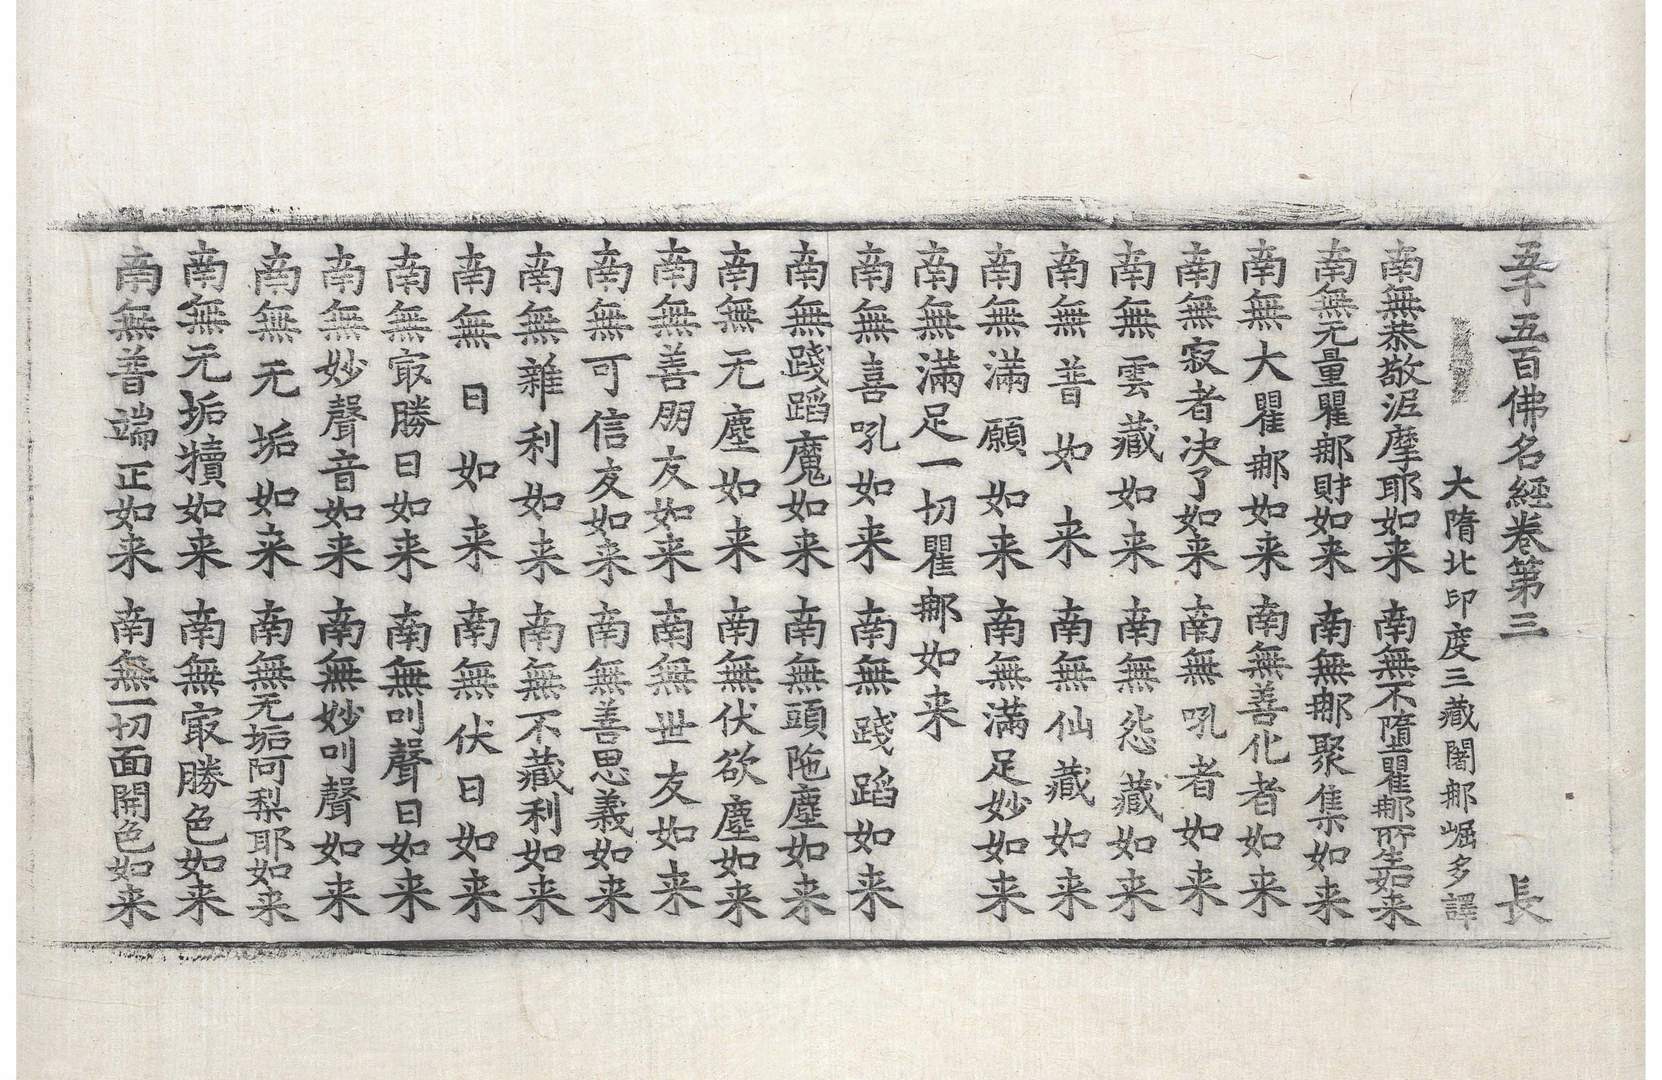 五千五百佛名經卷第三 長
大隋北印度三藏闍那崛多譯
南無恭敬泥摩耶如来 南無不墮瞿那所生如来
南無无量瞿那財如来 南無那聚集如来
南無大瞿那如来 南無善化者如来
南無寂者決了如来 南無吼者如来
南無雲藏如来 南無怨藏如来
南無普如来 南無仙藏如来
南無滿願如来 南無滿足妙如来
南無滿足一切瞿那如来
南無喜吼如来 南無踐蹈如来
南無踐蹈魔如来 南無頭陁塵如来
南無无塵如来 南無伏欲塵如来
南無善朋友如来 南無世友如来
南無可信友如来 南無善思義如来
南無雜利如来 南無不藏利如来
南無日如来 南無伏日如来
南無㝡勝日如来 南無叫聲日如来
南無妙聲音如来 南無妙叫聲如来
南無无垢如来 南無无垢阿梨耶如来
南無无垢犢如来 南無㝡勝色如来
南無普端正如来 南無一切面開色如来